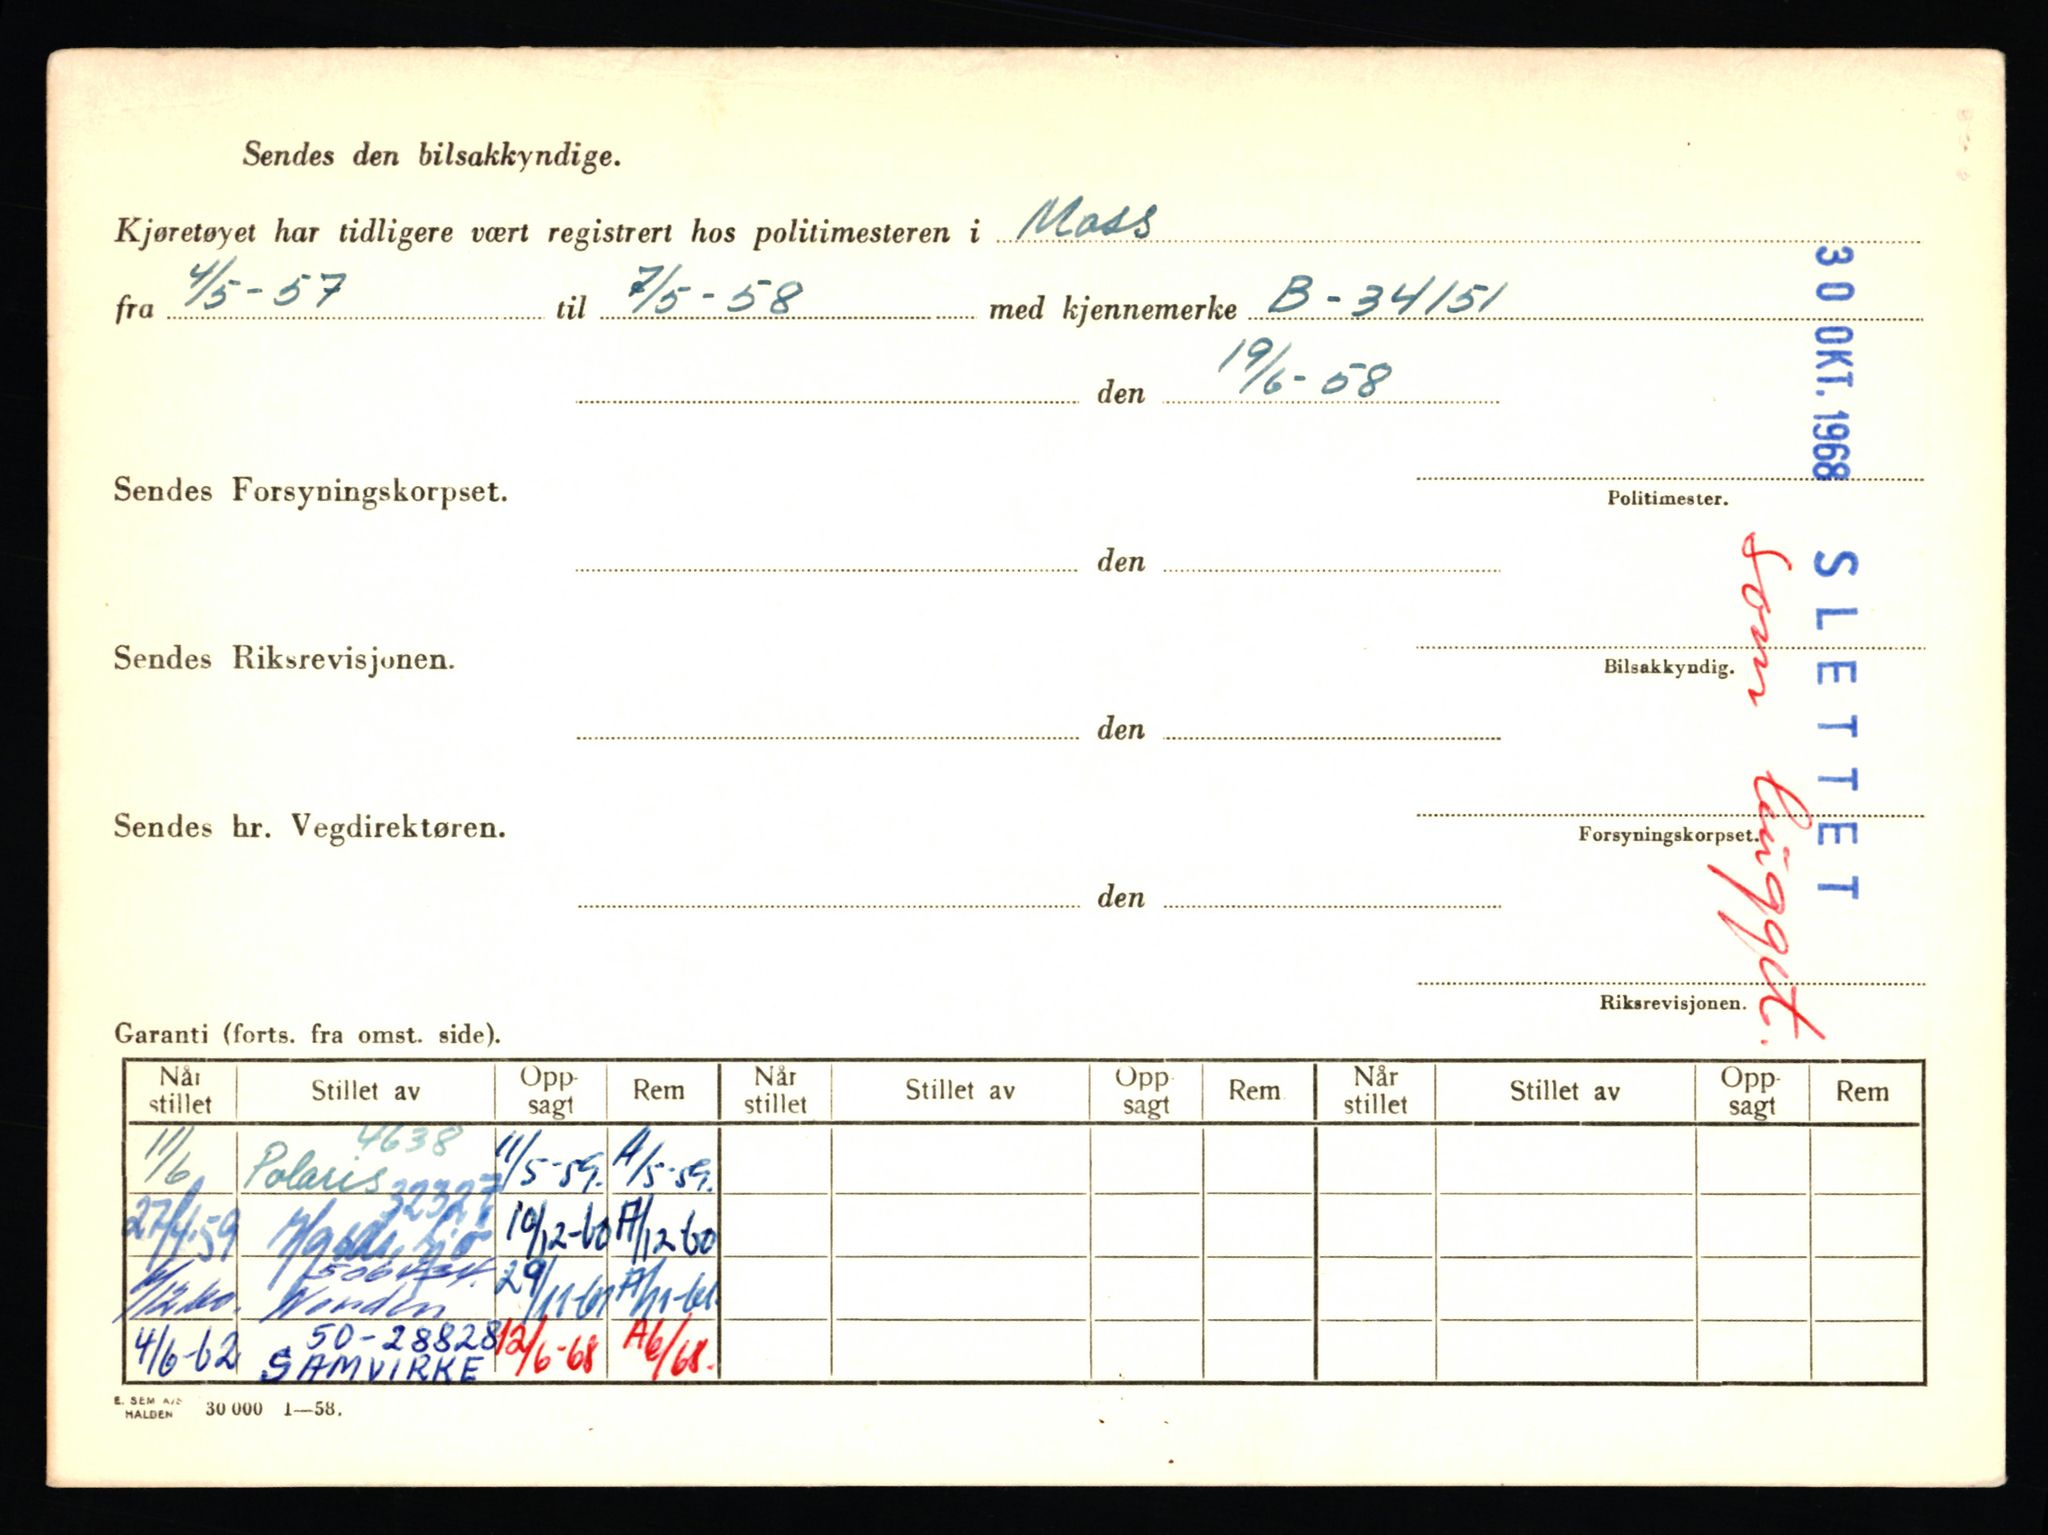 Sendes den bilsakkyndige.
Kjøretøyet har tidligere vært registrert hos politimesteren i Moss
fra 4/5-57 til 7/5-58 med kjennemerke B-34151
den 19/6-58
Sendes Forsyningskorpset.
Politimester.
den
Sendes Riksrevisjonen.
Bilsakkyndig.
den
Sendes hr. Vegdirektøren.
Forsyningskorpset.
den
Riksrevisjonen.
30 OKT. 1968 SLETTET
Som
Garanti (forts. fra omst. side).
Når stillet Stillet av Oppsagt Rem Når stillet Stillet av Oppsagt Rem Når stillet Stillet av Oppsagt Rem
4638
11/6 Polaris 11/5-59. A/5-59.
32327
27/4-59 10/12-60 A/12-60
/12-60. Norden 29/11-61 A/11-61.
50-28828
4/6-62 SAMVIRKE 12/6-68 A6/68.
E. SEM A/S
HALDEN 30 000 1—58.